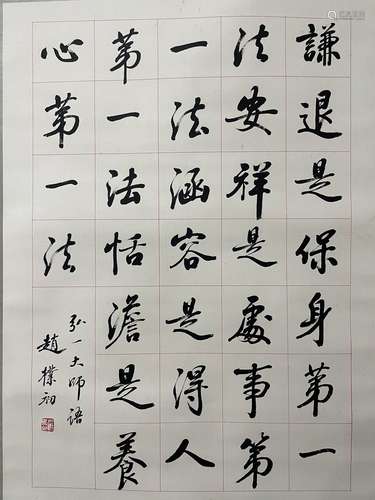 謙退是保身第一
法安祥是處事第
一法涵容是得人
第一法恬澹是養
心第一法
弘一大師語
趙樸初